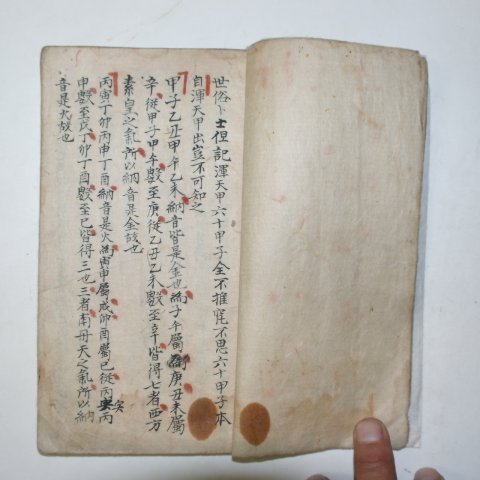 世俗卜士但記渾天甲六十甲子全不推究不思六十甲子本
自渾天甲出豈不可知之
甲子乙丑甲午乙未納音皆是金也為子午屬庚丑未屬
辛從甲子甲午數至庚從乙丑乙未數至辛皆得七者西方
素皇之氣所以納音是金故也
丙寅丁卯丙申丁酉納音是火為寅申屬戊卯酉屬己從丙寅丙
申數至戊丁卯丁酉數至己皆得三也三者南丹天之氣所以納
音是火故也